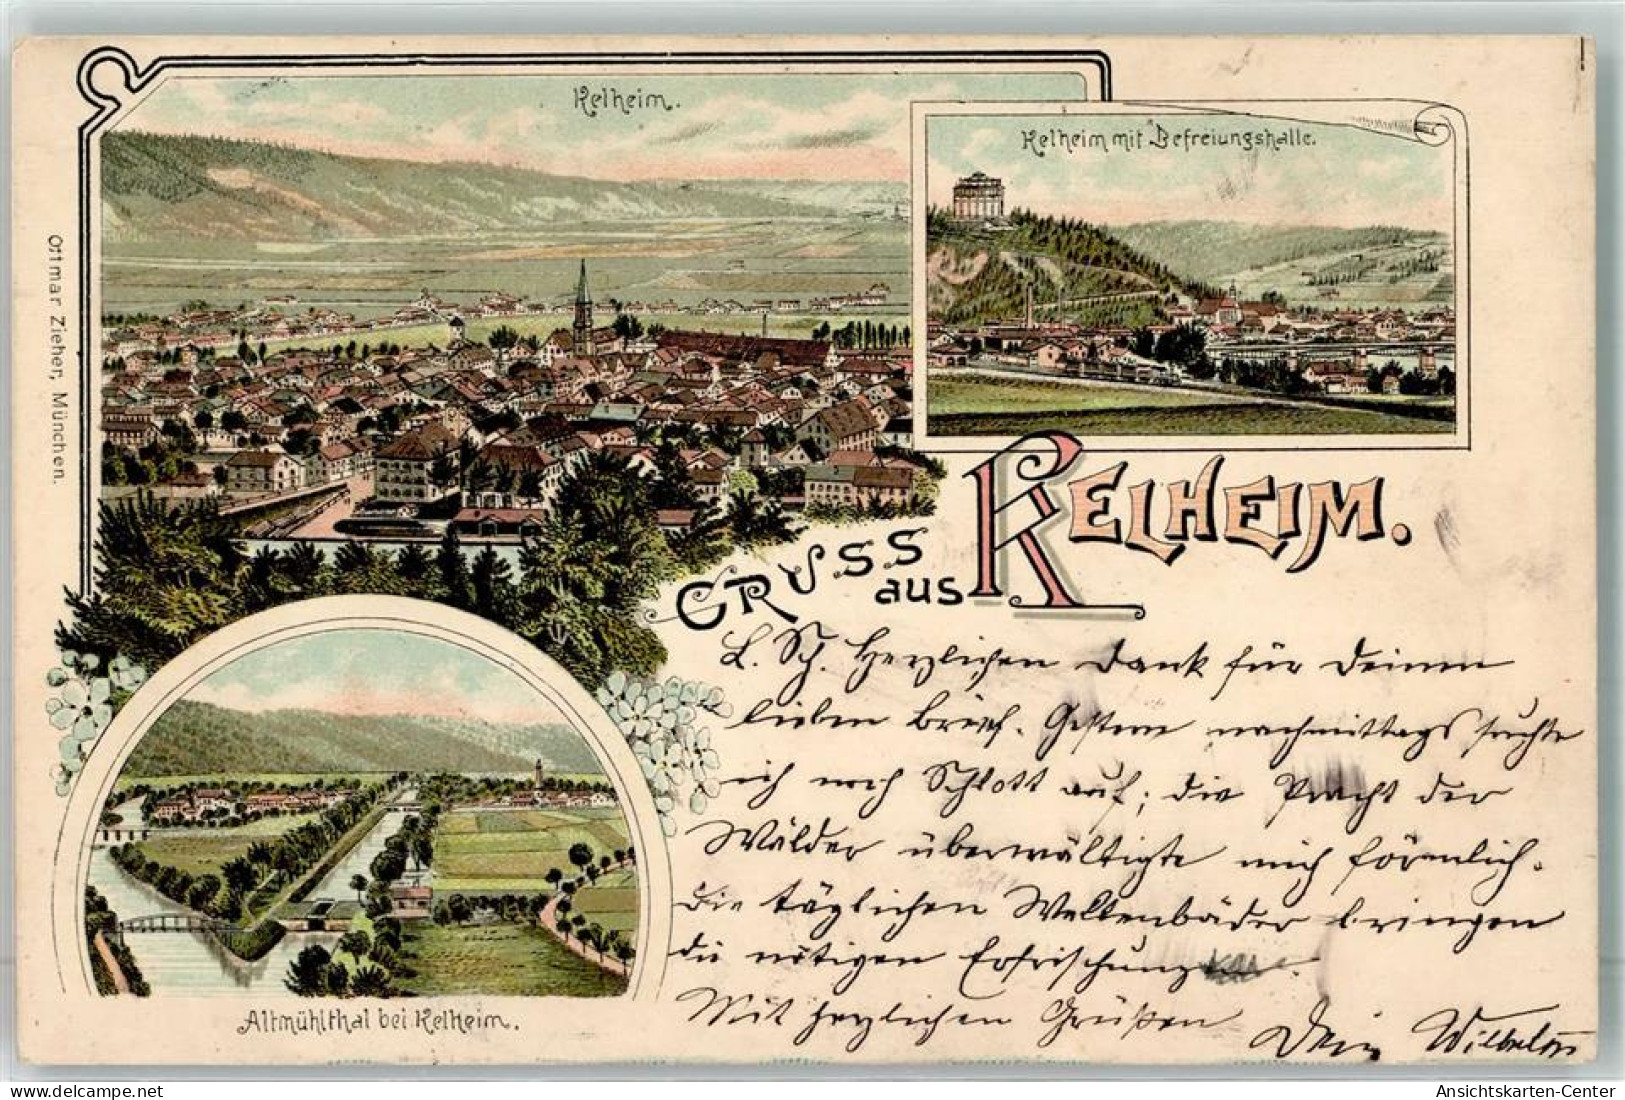 Kelheim.
Kelheim mit Befreiungshalle.
Ottmar Zieher, München.
GRUSS aus KELHEIM.
L. Sch. Herzlichen Dank für Deinen
lieben Brief. Gestern nachmittags suchte
ich noch Schlott auf; die Pracht der
Wälder überwältigte mich förmlich.
Die täglichen Wellenbäder bringen
die nötigen Erfrischung
Mit herzlichen Grüßen
Dein Wilhelm
Altmühlthal bei Kelheim.
Ansichtskarten-Center